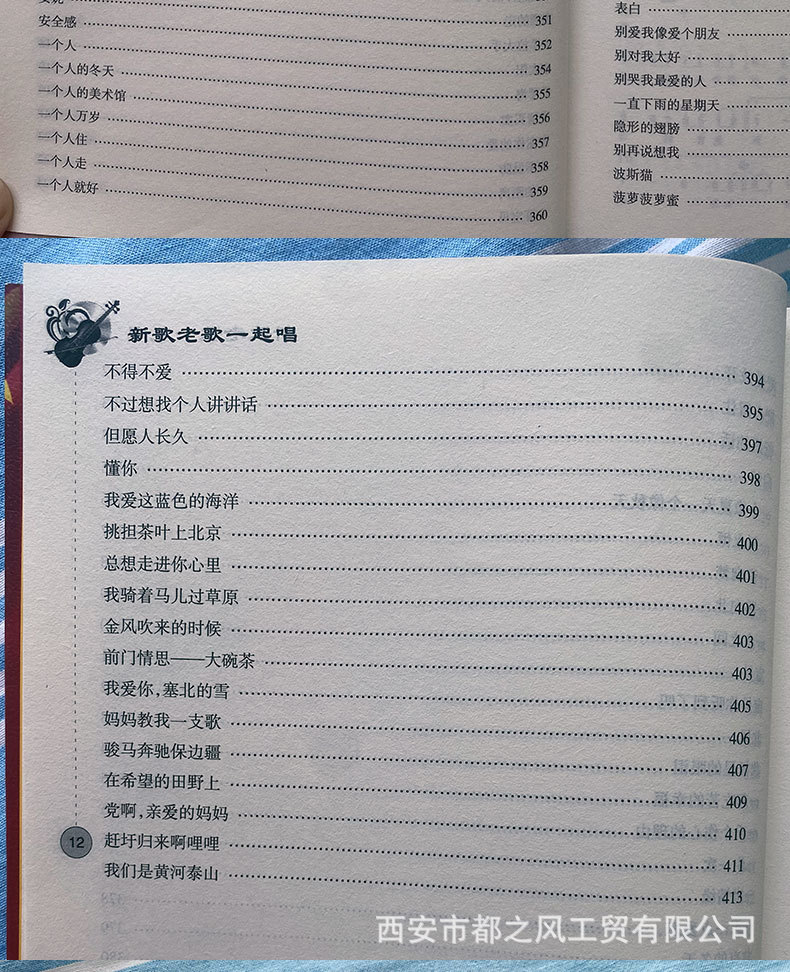 351
安全感 …… 352
一个人 …… 354
一个人的冬天 …… 355
一个人的美术馆 …… 356
一个人万岁 …… 357
一个人住 …… 358
一个人走 …… 359
一个人就好 …… 360
表白 ……
别爱我像爱个朋友 ……
别对我太好 ……
别哭我最爱的人 ……
一直下雨的星期天 ……
隐形的翅膀 ……
别再说想我 ……
波斯猫 ……
菠萝菠萝蜜 ……
新歌老歌一起唱
不得不爱 …… 394
不过想找个人讲讲话 …… 395
但愿人长久 …… 397
懂你 …… 398
我爱这蓝色的海洋 …… 399
挑担茶叶上北京 …… 400
总想走进你心里 …… 401
我骑着马儿过草原 …… 402
金风吹来的时候 …… 403
前门情思——大碗茶 …… 403
我爱你,塞北的雪 …… 405
妈妈教我一支歌 …… 406
骏马奔驰保边疆 …… 407
在希望的田野上 …… 409
党啊,亲爱的妈妈 …… 410
赶圩归来啊哩哩 …… 411
我们是黄河泰山 …… 413
12
西安市都之风工贸有限公司